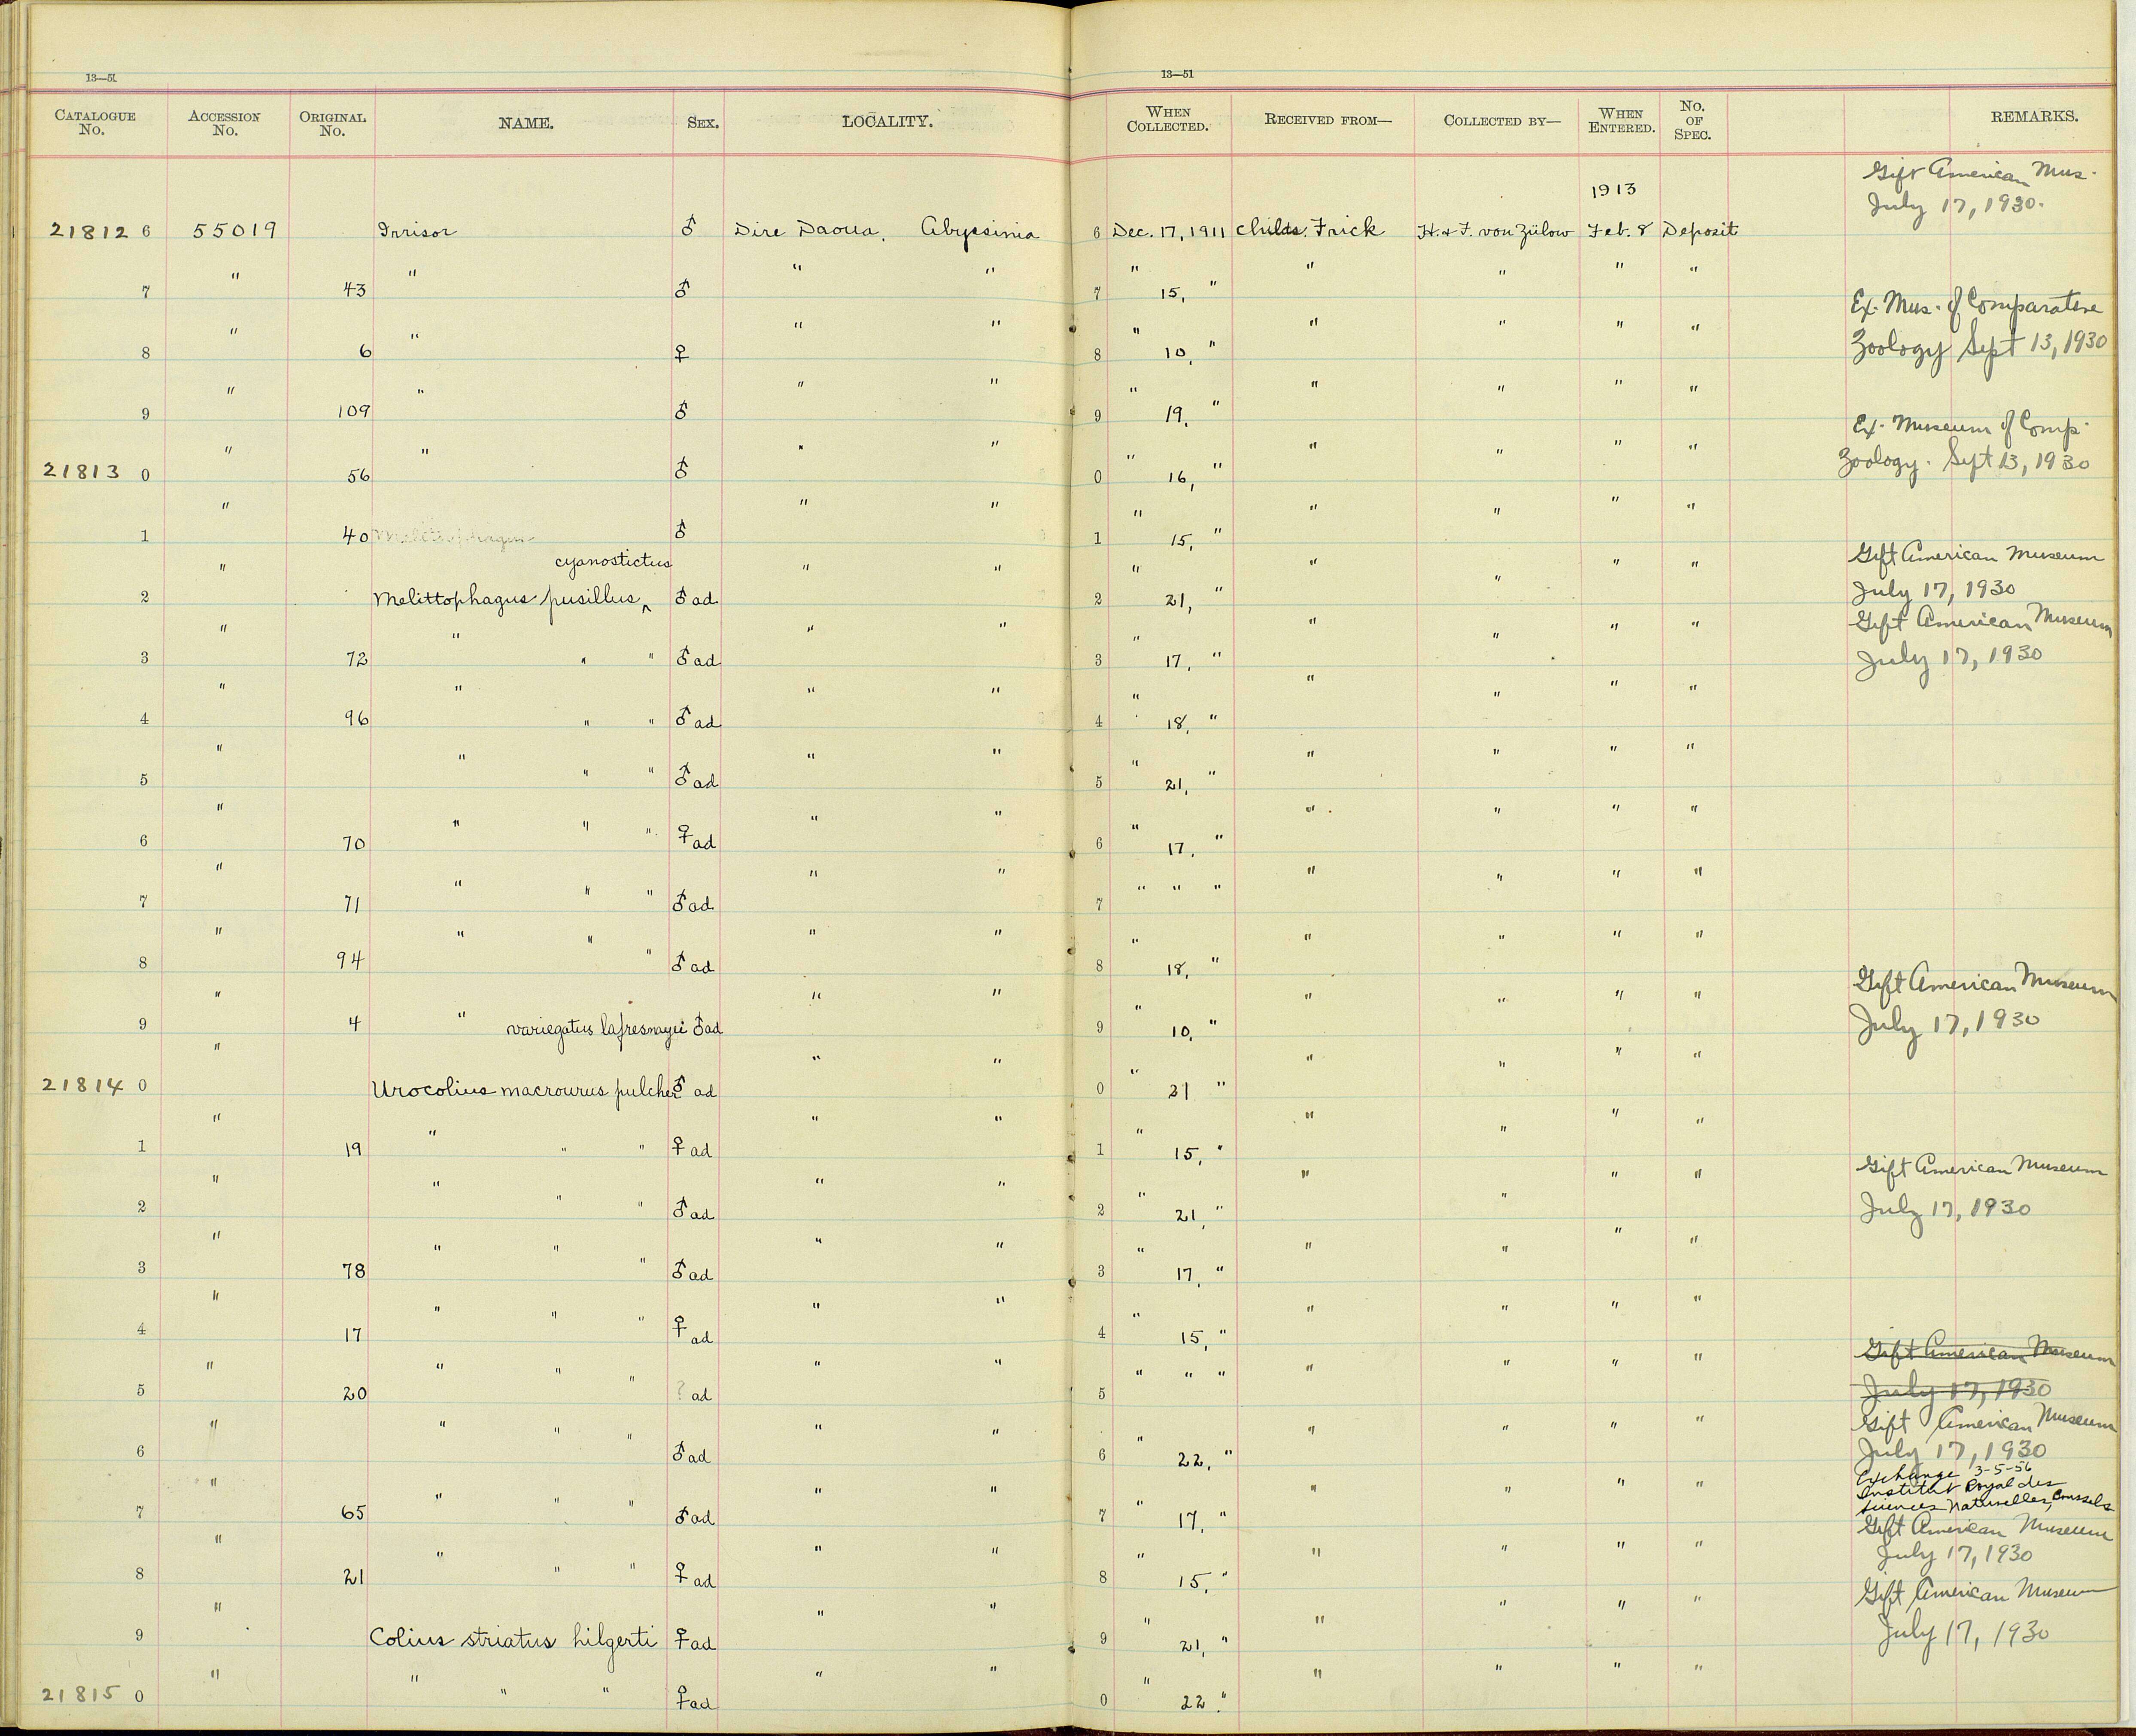 13—51
13—51
CATALOGUE No. ACCESSION No. ORIGINAL No. NAME. SEX. LOCALITY. WHEN COLLECTED. RECEIVED FROM— COLLECTED BY— WHEN ENTERED. No. OF SPEC. REMARKS.
1913 Gift American Mus.
July 17, 1930.
21812 6 55019 Irrisor ♂ Dire Daoua, Abyssinia 6 Dec. 17, 1911 Childs Frick H. & F. von Zülow Feb. 8 Deposit
7 " 43 " ♂ " " 7 " 15, " " " " "
Ex. Mus. of Comparative
8 " 6 " ♀ " " 8 " 10, " " " " " Zoology Sept 13, 1930
9 " 109 " ♂ " " 9 " 19, " " " " "
Ex. Museum of Comp.
21813 0 " 56 " ♂ " " 0 " 16, " " " " " Zoology. Sept 13, 1930
1 " 40 Melittophagus ♂ " " 1 " 15, " " " " "
cyanostictus Gift American Museum
2 " Melittophagus pusillus ‸ ♂ ad " " 2 " 21, " " " " " July 17, 1930
Gift American Museum
3 " 72 " " " ♂ ad " " 3 " 17, " " " " " July 17, 1930
4 " 96 " " " ♂ ad " " 4 " 18, " " " " "
5 " " " " ♂ ad " " 5 " 21, " " " " "
6 " 70 " " " ♀ ad " " 6 " 17, " " " " "
7 " 71 " " " ♂ ad " " 7 " " " " " " "
8 " 94 " " " ♂ ad " " 8 " 18, " " " " "
Gift American Museum
9 " 4 " variegatus lafresnayii ♂ ad " " 9 " 10, " " " " " July 17, 1930
21814 0 " Urocolius macrourus pulcher ♂ ad " " 0 " 21 " " " " "
1 " 19 " " " ♀ ad " " 1 " 15, " " " " "
Gift American Museum
2 " " " " ♂ ad " " 2 " 21, " " " " " July 17, 1930
3 " 78 " " " ♂ ad " " 3 " 17, " " " " "
4 " 17 " " " ♀ ad " " 4 " 15, " " " " "
Gift American Museum
5 " 20 " " " ? ad " " 5 " " " " " " " July 17, 1930
Gift American Museum
6 " " " " ♂ ad " " 6 " 22, " " " " " July 17, 1930
Exchange 3-5-56
Institut Royal des
Sciences Naturelles, Brussels
7 " 65 " " " ♂ ad " " 7 " 17, " " " " "
Gift American Museum
July 17, 1930
8 " 21 " " " ♀ ad " " 8 " 15, " " " " "
Gift American Museum
9 " Colius striatus hilgerti ♀ ad " " 9 " 21, " " " " " July 17, 1930
21815 0 " " " " ♀ ad " " 0 " 22 " " " " "